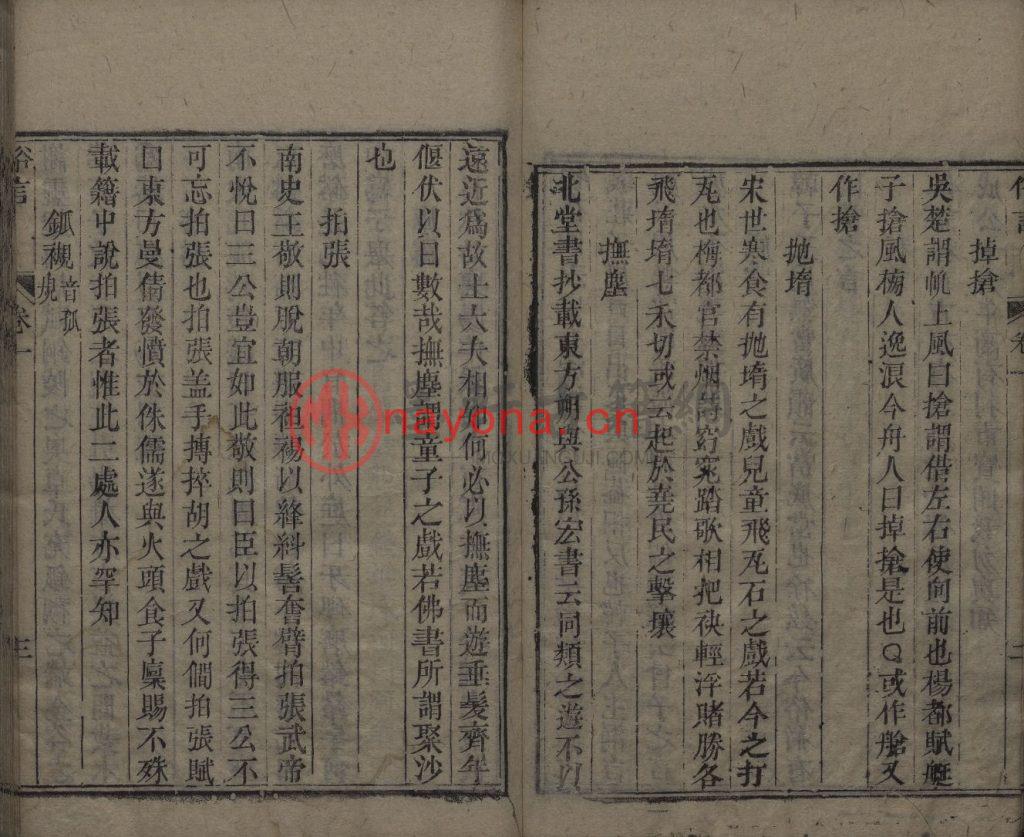 掉搶
吳楚謂帆上風曰搶謂借左右使向前也楊都賦艇
子搶風榜人逸浪今舟人曰掉搶是也Q或作艙又
作搶
抛堶
宋世寒食有抛堶之戲兒童飛瓦石之戲若今之打
瓦也梅都官禁烟詩窈窕踏歌相把袂輕浮賭勝各
飛堶堶七禾切或云起於堯民之擊壤
撫塵
北堂書抄載東方朔與公孫宏書云同類之遊不以
遠近爲故士大夫相知何必以撫塵而遊垂髮齊年
偃伏以日數哉撫塵謂童子之戲若佛書所謂聚沙
也
拍張
南史王敬則脫朝服袒裼以絳糾髻奮臂拍張武帝
不悅曰三公豈宜如此敬則曰臣以拍張得三公不
可忘拍張也拍張盖手搏捽胡之戲又何僩拍張賦
曰東方曼倩發憤於侏儒遂與火頭食子稟賜不殊
載籍中說拍張者惟此二處人亦罕知
俗言 卷一 三
nayona.cn